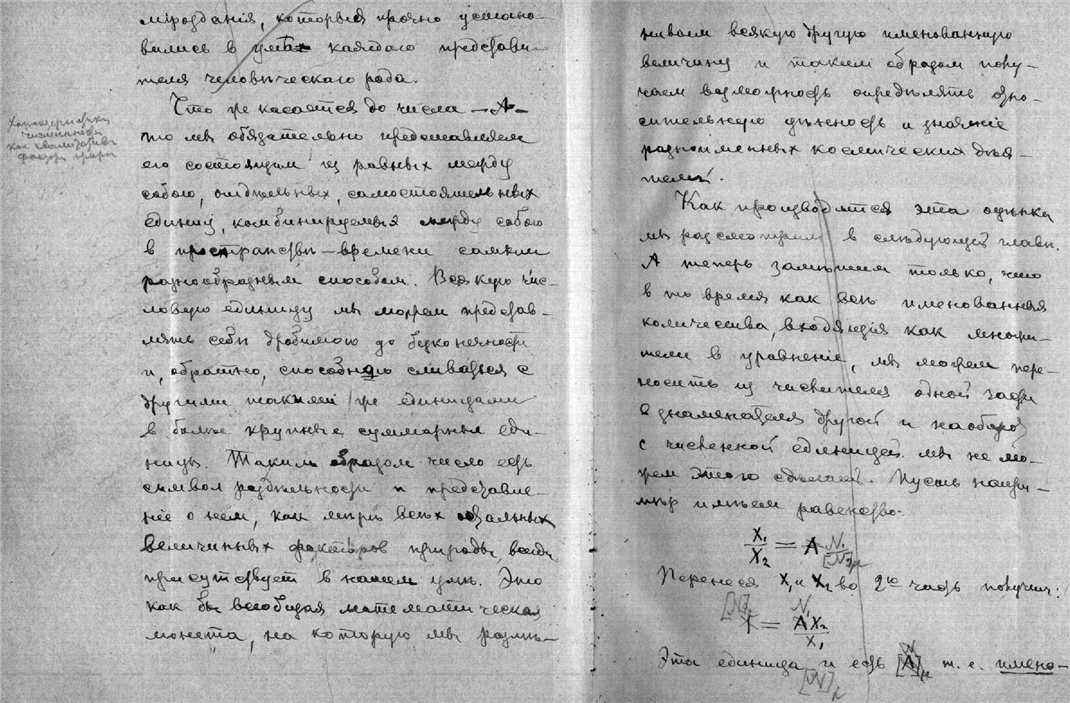 мірозданія, которыя прочно устано-
вились в умах каждаго представи-
теля человѣческаго рода.
Что же касается до числа — А —
то мы обязательно представляем
его состоящим из равных между
собою, отдѣльных, самостоятельных
единиц, комбинируемых между собою
в пространствѣ — времени самым
разнообразным способом. Всякую чис-
ловую единицу мы можем представ-
лять себѣ дробимою до безконечности
и, обратно, способною сливаться с
другими такими же единицами
в болѣе крупныя суммарныя еди-
ницы. Таким образом число есть
символ раздѣльности и представле-
ніе о нем, как мѣрѣ всѣх реальных
величинных факторов природы, всегда
присутствует в нашем умѣ. Это
как бы всеобщая математическая
монета, на которую мы размѣ-
Характеристика
численная
как
фактор природы
ниваем всякую другую именованную
величину и таким образом полу-
чаем возможность опредѣлять отно-
сительную цѣнность и значеніе
разноименных космических дѣя-
телей.
Как производится эта оцѣнка
мы разсмотрим в слѣдующей главѣ.
А теперь замѣтим только, что
в то время как всѣ именованныя
количества, входящія как множи-
тели в уравненіе, мы можем пере-
носить из числителя одной части
в знаменателя другой и наоборот
с численной единицей мы не мо-
жем этого сдѣлать. Пусть напри-
мѣр имѣем равенство.
X₁/X₂ = A N₁/[N₂]μ
Перенеся X₁ и X₂ во 2ю часть получим:
[N]μ N₁
1 = AX₂/X₁
Эта единица и есть [A]μ N т. е. имено-
[N]μ